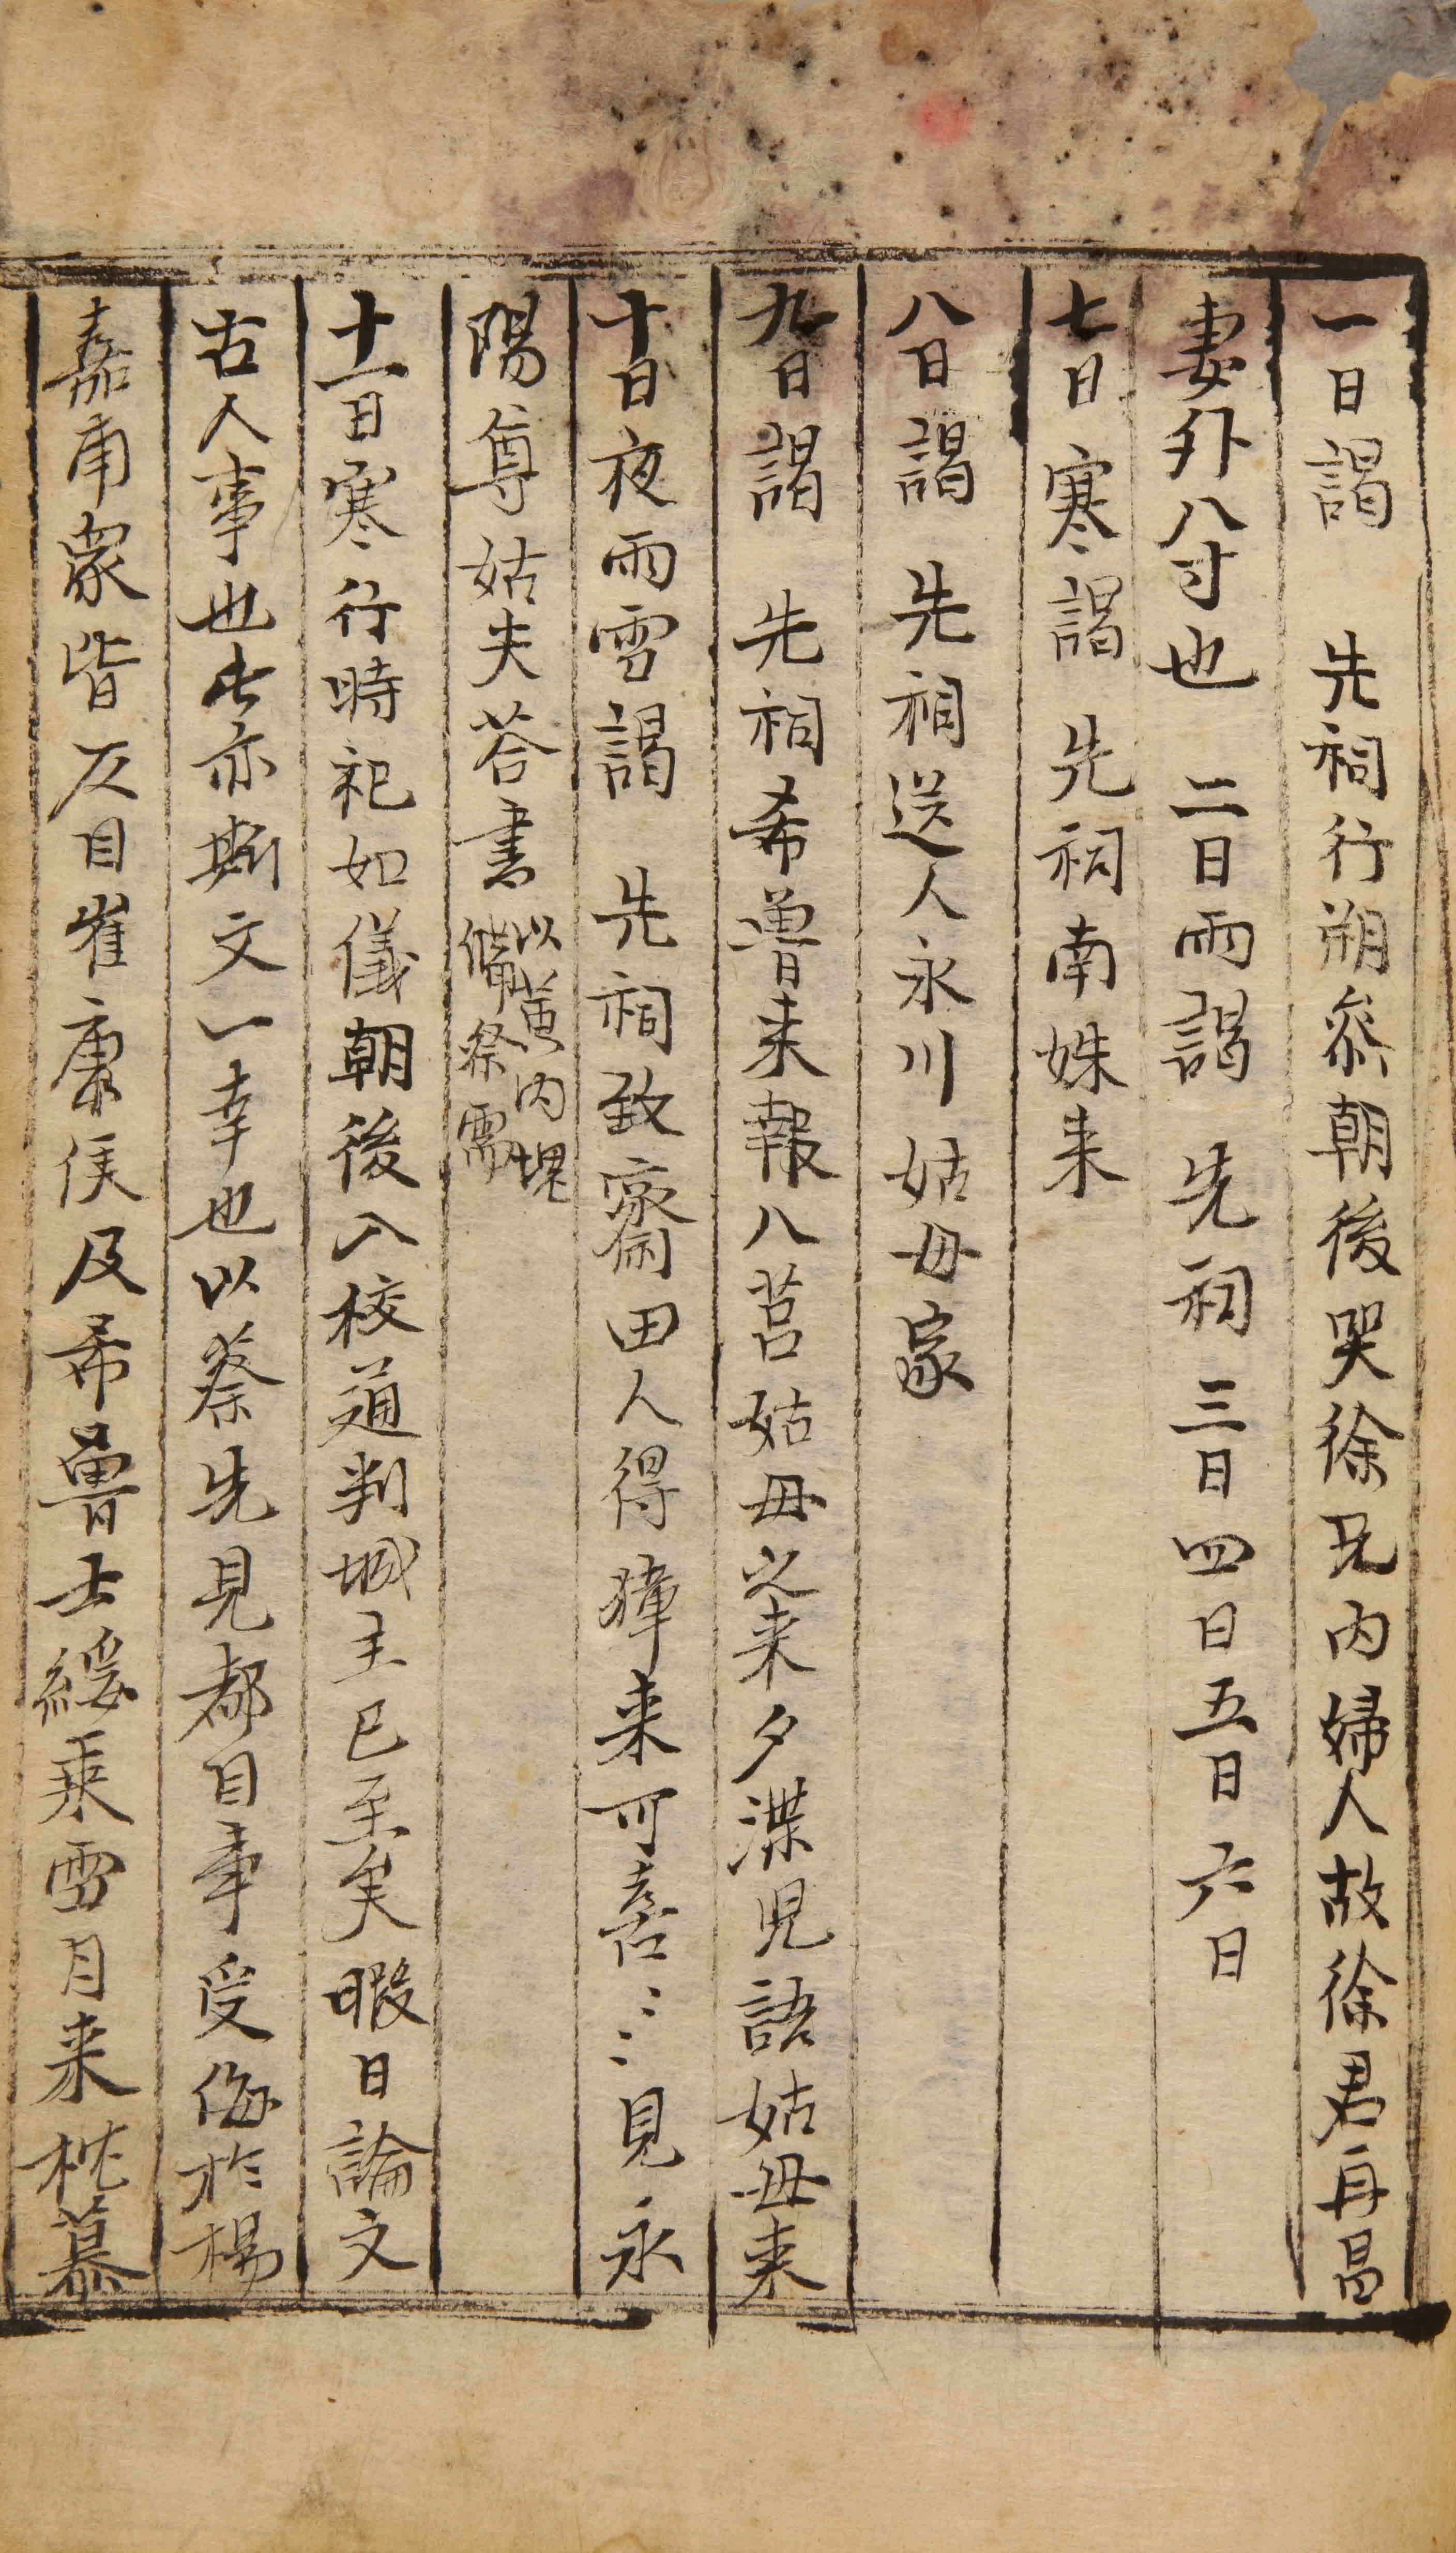 一日謁 先祠行朔叅朝後哭徐兄內婦人故徐君再昌
妻外八寸也 二日雨謁 先祠 三日四日五日六日
七日寒謁 先祠南姝来
八日謁 先祠送人永川姑母家
九日謁 先祠希魯来報八莒姑母之来夕渫児語姑母来
十日夜雨雪謁 先祠致齋田人得獐来可喜〻〻見永
陽尊姑夫荅書
以黄肉塊
備祭需
十一日寒行時祀如儀朝後入校通判城主已至矣暇日論文
古人事也此亦斯文一幸也以蔡先見都目事受侮於楊
嘉甫衆皆反目崔康侯及希魯士綏乘雪月来枕慕